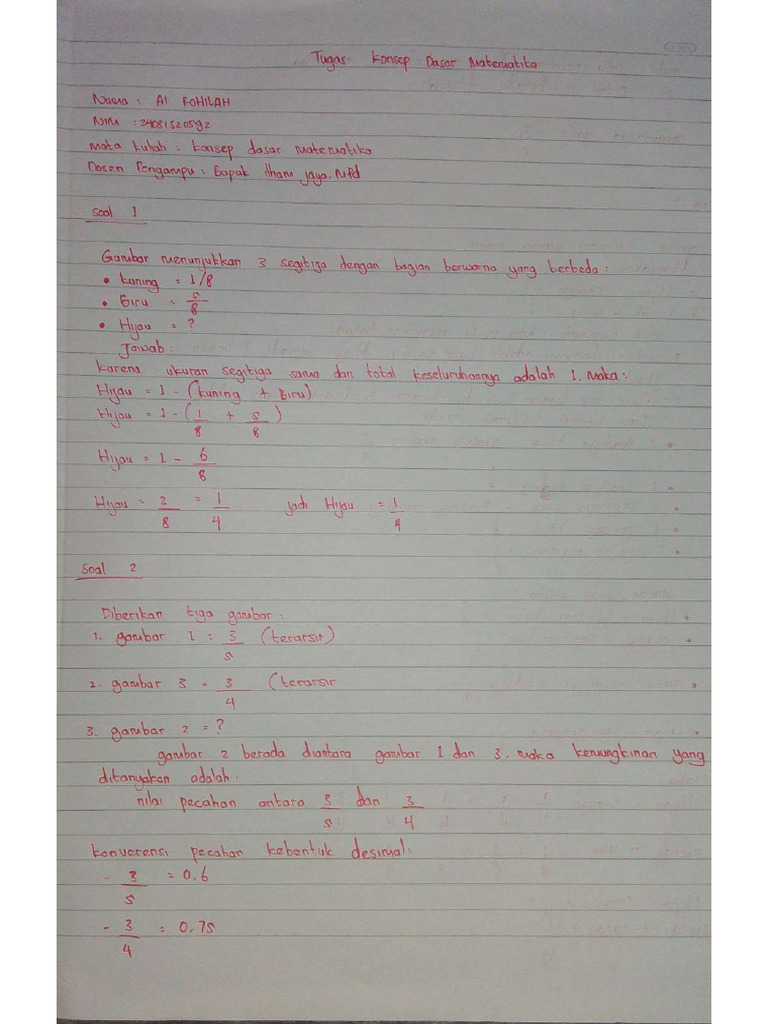 Tugas Konsep Dasar Matematika
Nama : Al FOHILAH
Mata kuliah : Konsep dasar matematika
Dosen Pengampu : Bapak Ilham Jaya, M.Pd
Soal 1
Gambar menunjukkan 3 segitiga dengan bagian berwarna yang berbeda :
• Kuning = 1/8
• Biru = 5/8
• Hijau = ?
Jawab :
Karena ukuran segitiga sama dan total keseluruhannya adalah 1. Maka :
Hijau = 1 - (kuning + Biru)
Hijau = 1 - (1/8 + 5/8)
Hijau = 1 - 6/8
Hijau = 2/8 = 1/4 jadi Hijau = 1/4
Soal 2
Diberikan tiga gambar :
1. gambar 1 = 3/5 (terarsir)
2. gambar 3 = 3/4 (terarsir
3. gambar 2 = ?
gambar 2 berada diantara gambar 1 dan 3. maka kemungkinan yang
ditanyakan adalah :
nilai pecahan antara 3/5 dan 3/4
Konverensi pecahan kebentuk desimal :
- 3/5 = 0.6
- 3/4 = 0.75